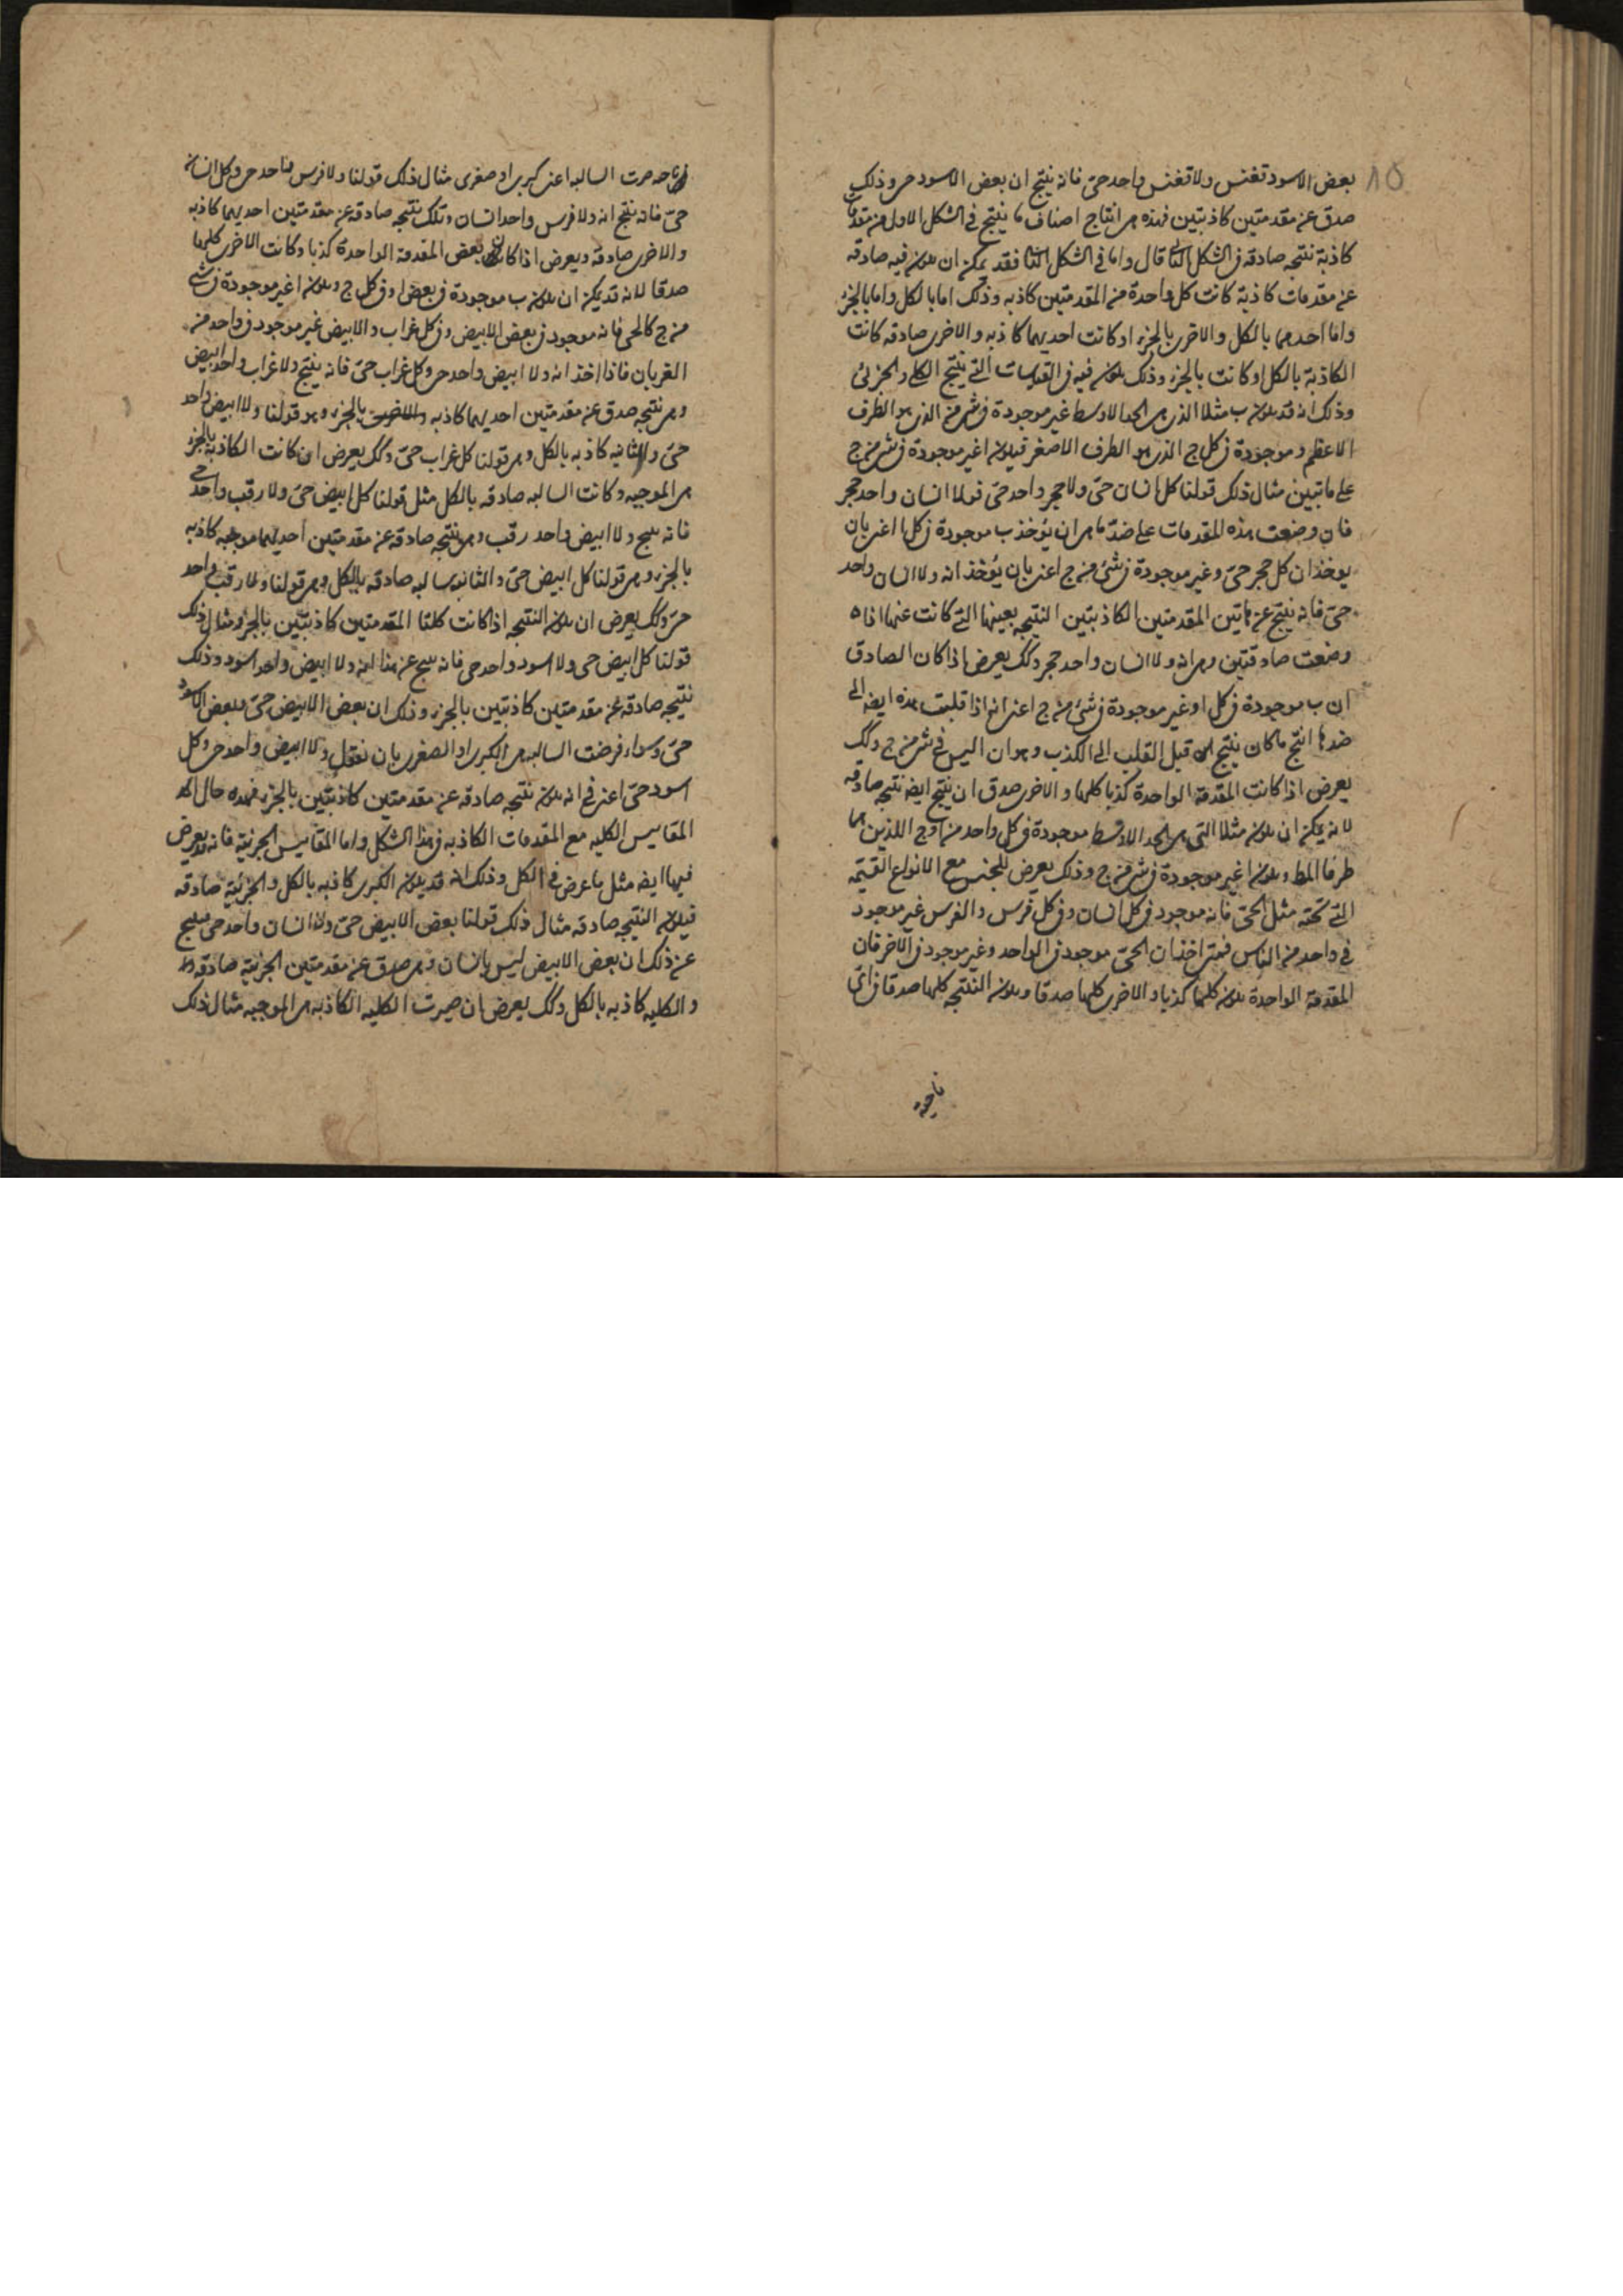 ١٥
بعض الاسود تقنس ولا تقنس واحد حىّ فانه ينتج ان بعض الاسود حى وذلك
صدق عن مقدمتين كاذبتين فهذه هى انتاج اصناف ما ينتج فى الشكل الاول من مقدمات
كاذبة نتيجه صادقه فى الشكل الثانى قال واما فى الشكل الثانى فقد يمكن ان يكون فيه صادقه
عن مقدمات كاذبة كانت كل واحدة من المقدمتين كاذبه وذلك اما بالكل واما بالجزء
واما احدهما بالكل والاخرى بالجزء او كانت احديهما كاذبه والاخرى صادقه كانت
الكاذبة بالكل او كانت بالجزء وذلك يكون فيه فى القياسات التى ينتج الكلى والجزئى
وذلك انه قد يكون ب مثلا الذى هى الحد الاوسط غير موجودة فى شى من الذى هو الطرف
الاعظم وموجودة فى كل ج الذى هو الطرف الاصغر فيكون ا غير موجودة فى شى من ج
على ما تبين مثال ذلك قولنا كل انسان حىّ ولا حجر واحد حىّ فولا انسان واحد حجر
فان وضعت هذه المقدمات على ضد ما هى ان يؤخذ ب موجودة فى كل ا اعنى بان
يوخذ ان كل حجر حىّ وغير موجودة فى شئ من ج اعنى بان يُؤخذ انه ولا انسان واحد
حىّ فانه ينتج عن هاتين المقدمتين الكاذبتين النتيجه بعينها التى كانت عنهما اذا
وضعت صادقتين وهى انه ولا انسان واحد حجر وكك يعرض اذا كان الصادق
ان ب موجودة فى كل ا وغير موجودة فى شئ من ج اعنى انه اذا قلبت هذه ايضه الى
ضدها انتج ما كان ينتج قبل القلب الى الكذب وهو ان ا ليس فى شى من ج وكك
يعرض اذا كانت المقدمة الواحدة كذبا كلها والاخرى صدق ان ينتج ايضه نتيجه صادقه
لانه يمكن ان يكون مثلا التى هى الحد الاوسط موجودة فى كل واحد من ا وج اللذين هما
طرفا المط ويكون ا غير موجودة فى شى من ج وذلك يعرض للجنس مع الانواع القسيمه
التى تحته مثل الحىّ فانه موجود فى كل انسان وفى كل فرس والفرس غير موجود
فى واحد من الناس فمتى اخذ ان الحىّ موجود فى الواحد وغير موجود فى الآخر فان
المقدمة الواحدة يكون كلها كذبا والاخرى كلها صدقا ويكون النتيجه كلها صدقا فى اى
ناحية
ناحيه صرت السالبه اعنى كبرى او صغرى مثال ذلك قولنا ولا فرس واحد حى وكل انسان
حىّ فانه ينتج انه ولا فرس واحد انسان وتلك نتيجه صادقه عن مقدمتين احديهما كاذبه
والاخرى صادقه ويعرض اذا كان بعض المقدمة الواحدة كذبا وكانت الاخرى كلها
صدقا لانه قد يمكن ان يكون ب موجودة فى بعض ا وفى كل ج ويكون ا غير موجودة فى شى
من ج كالحى فانه موجود فى بعض الابيض وفى كل غراب والابيض غير موجود فى واحد من
الغربان فاذا اخذ انه ولا ابيض واحد حى وكل غراب حىّ فانه ينتج ولا غراب واحد ابيض
وهى نتيجه صدق عن مقدمتين احديهما كاذبه بالجزء وهو قولنا ولا ابيض واحد
حىّ والثانيه كاذبه بالكل وهى قولنا كل غراب حىّ وكك يعرض ان كانت الكاذبة بالجزء
هى الموجبه وكانت السالبه صادقه بالكل مثل قولنا كل ابيض حىّ ولا رقب واحد حى
فانه ينتج ولا ابيض واحد رقب وهى نتيجه صادقه عن مقدمتين احديهما موجبه كاذبه
بالجزء وهى قولنا كل ابيض حىّ والثانيه سالبه صادقه بالكل وهى قولنا ولا رقب واحد
حى وكك يعرض ان يكون النتيجه اذا كانت كلتا المقدمتين كاذبتين بالجزء ومثال ذلك
قولنا كل ابيض حى ولا اسود واحد حى فانه ينتج عن هذا انه ولا ابيض واحد اسود وذلك
نتيجه صادقه عن مقدمتين كاذبتين بالجزء وذلك ان بعض الابيض حىّ وبعض الاسود
حىّ وسواء فرضت السالبه هى الكبرى او الصغرى بان نقول ولا ابيض واحد حى وكل
اسود حىّ اعنى فى انه يكون نتيجه صادقه عن مقدمتين كاذبتين بالجزء فهذه حال
المقاييس الكليه مع المقدمات الكاذبه فى هذا الشكل واما المقاييس الجزئية فانه قد يعرض
فيها ايضه مثل ما عرض فى الكل وذلك انه قد يكون الكبرى كاذبه بالكل والجزئية صادقه
فيكون النتيجه صادقه مثال ذلك قولنا بعض الابيض حىّ ولا انسان واحد حى فينتج
عن ذلك ان بعض الابيض ليس بانسان وهى صدق عن مقدمتين الجزئية صادقه
والكليه كاذبه بالكل وكك يعرض ان صيرت الكليه الكاذبه هى الموجبه مثال ذلك